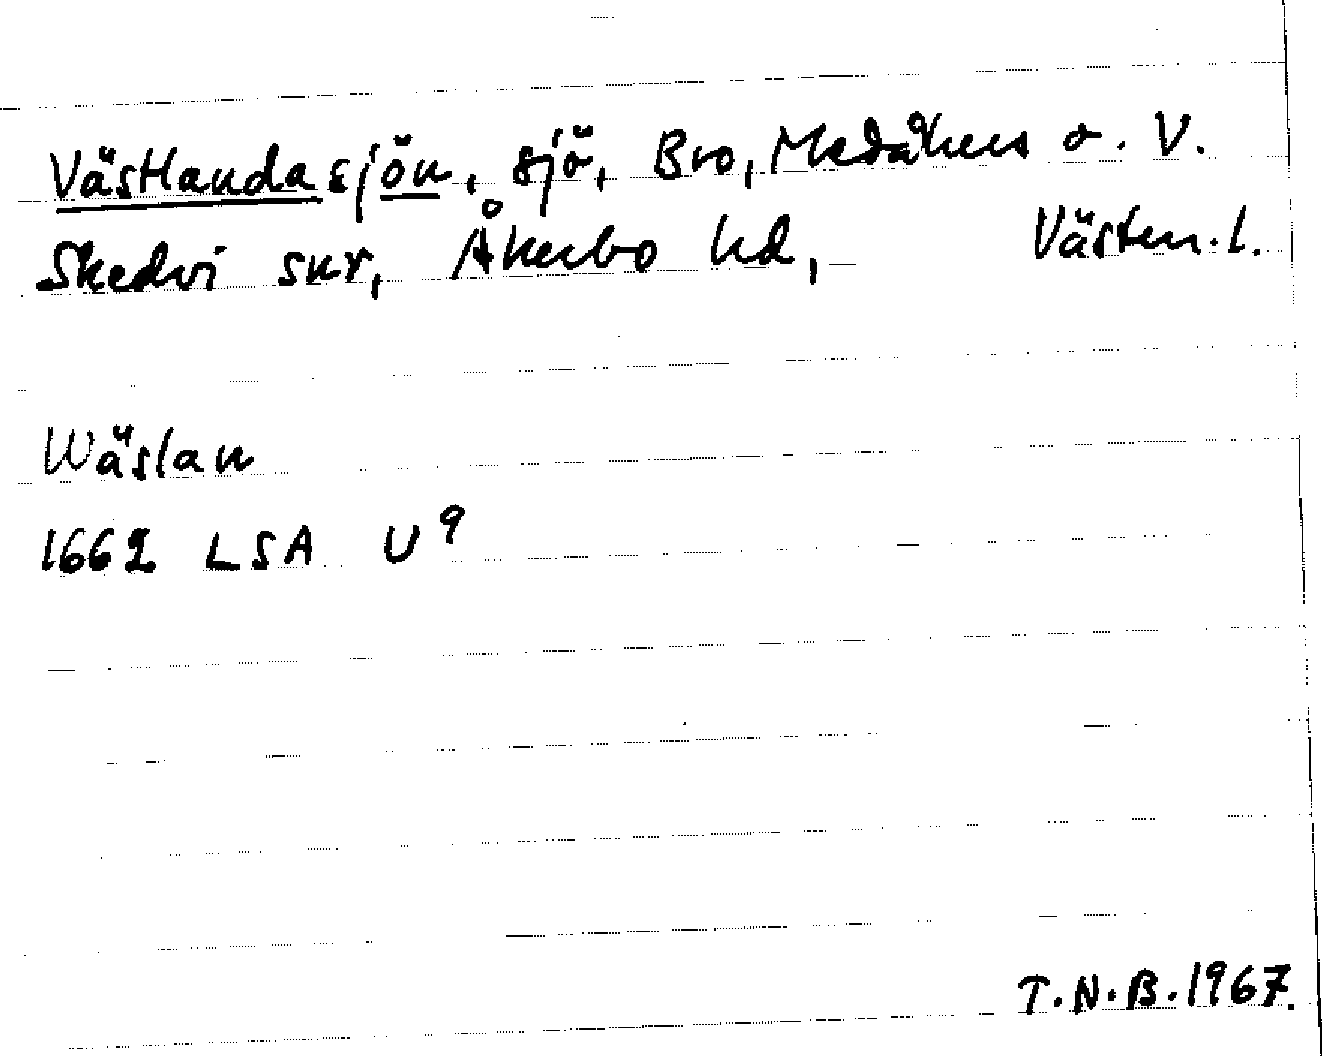 Västlandasjön, sjö, Bro, Medåkers o. V.
Skedvi snr, Åkerbo hd, Västm. l.
Wäslan
1662 LSA U9
T.N.B. 1967.